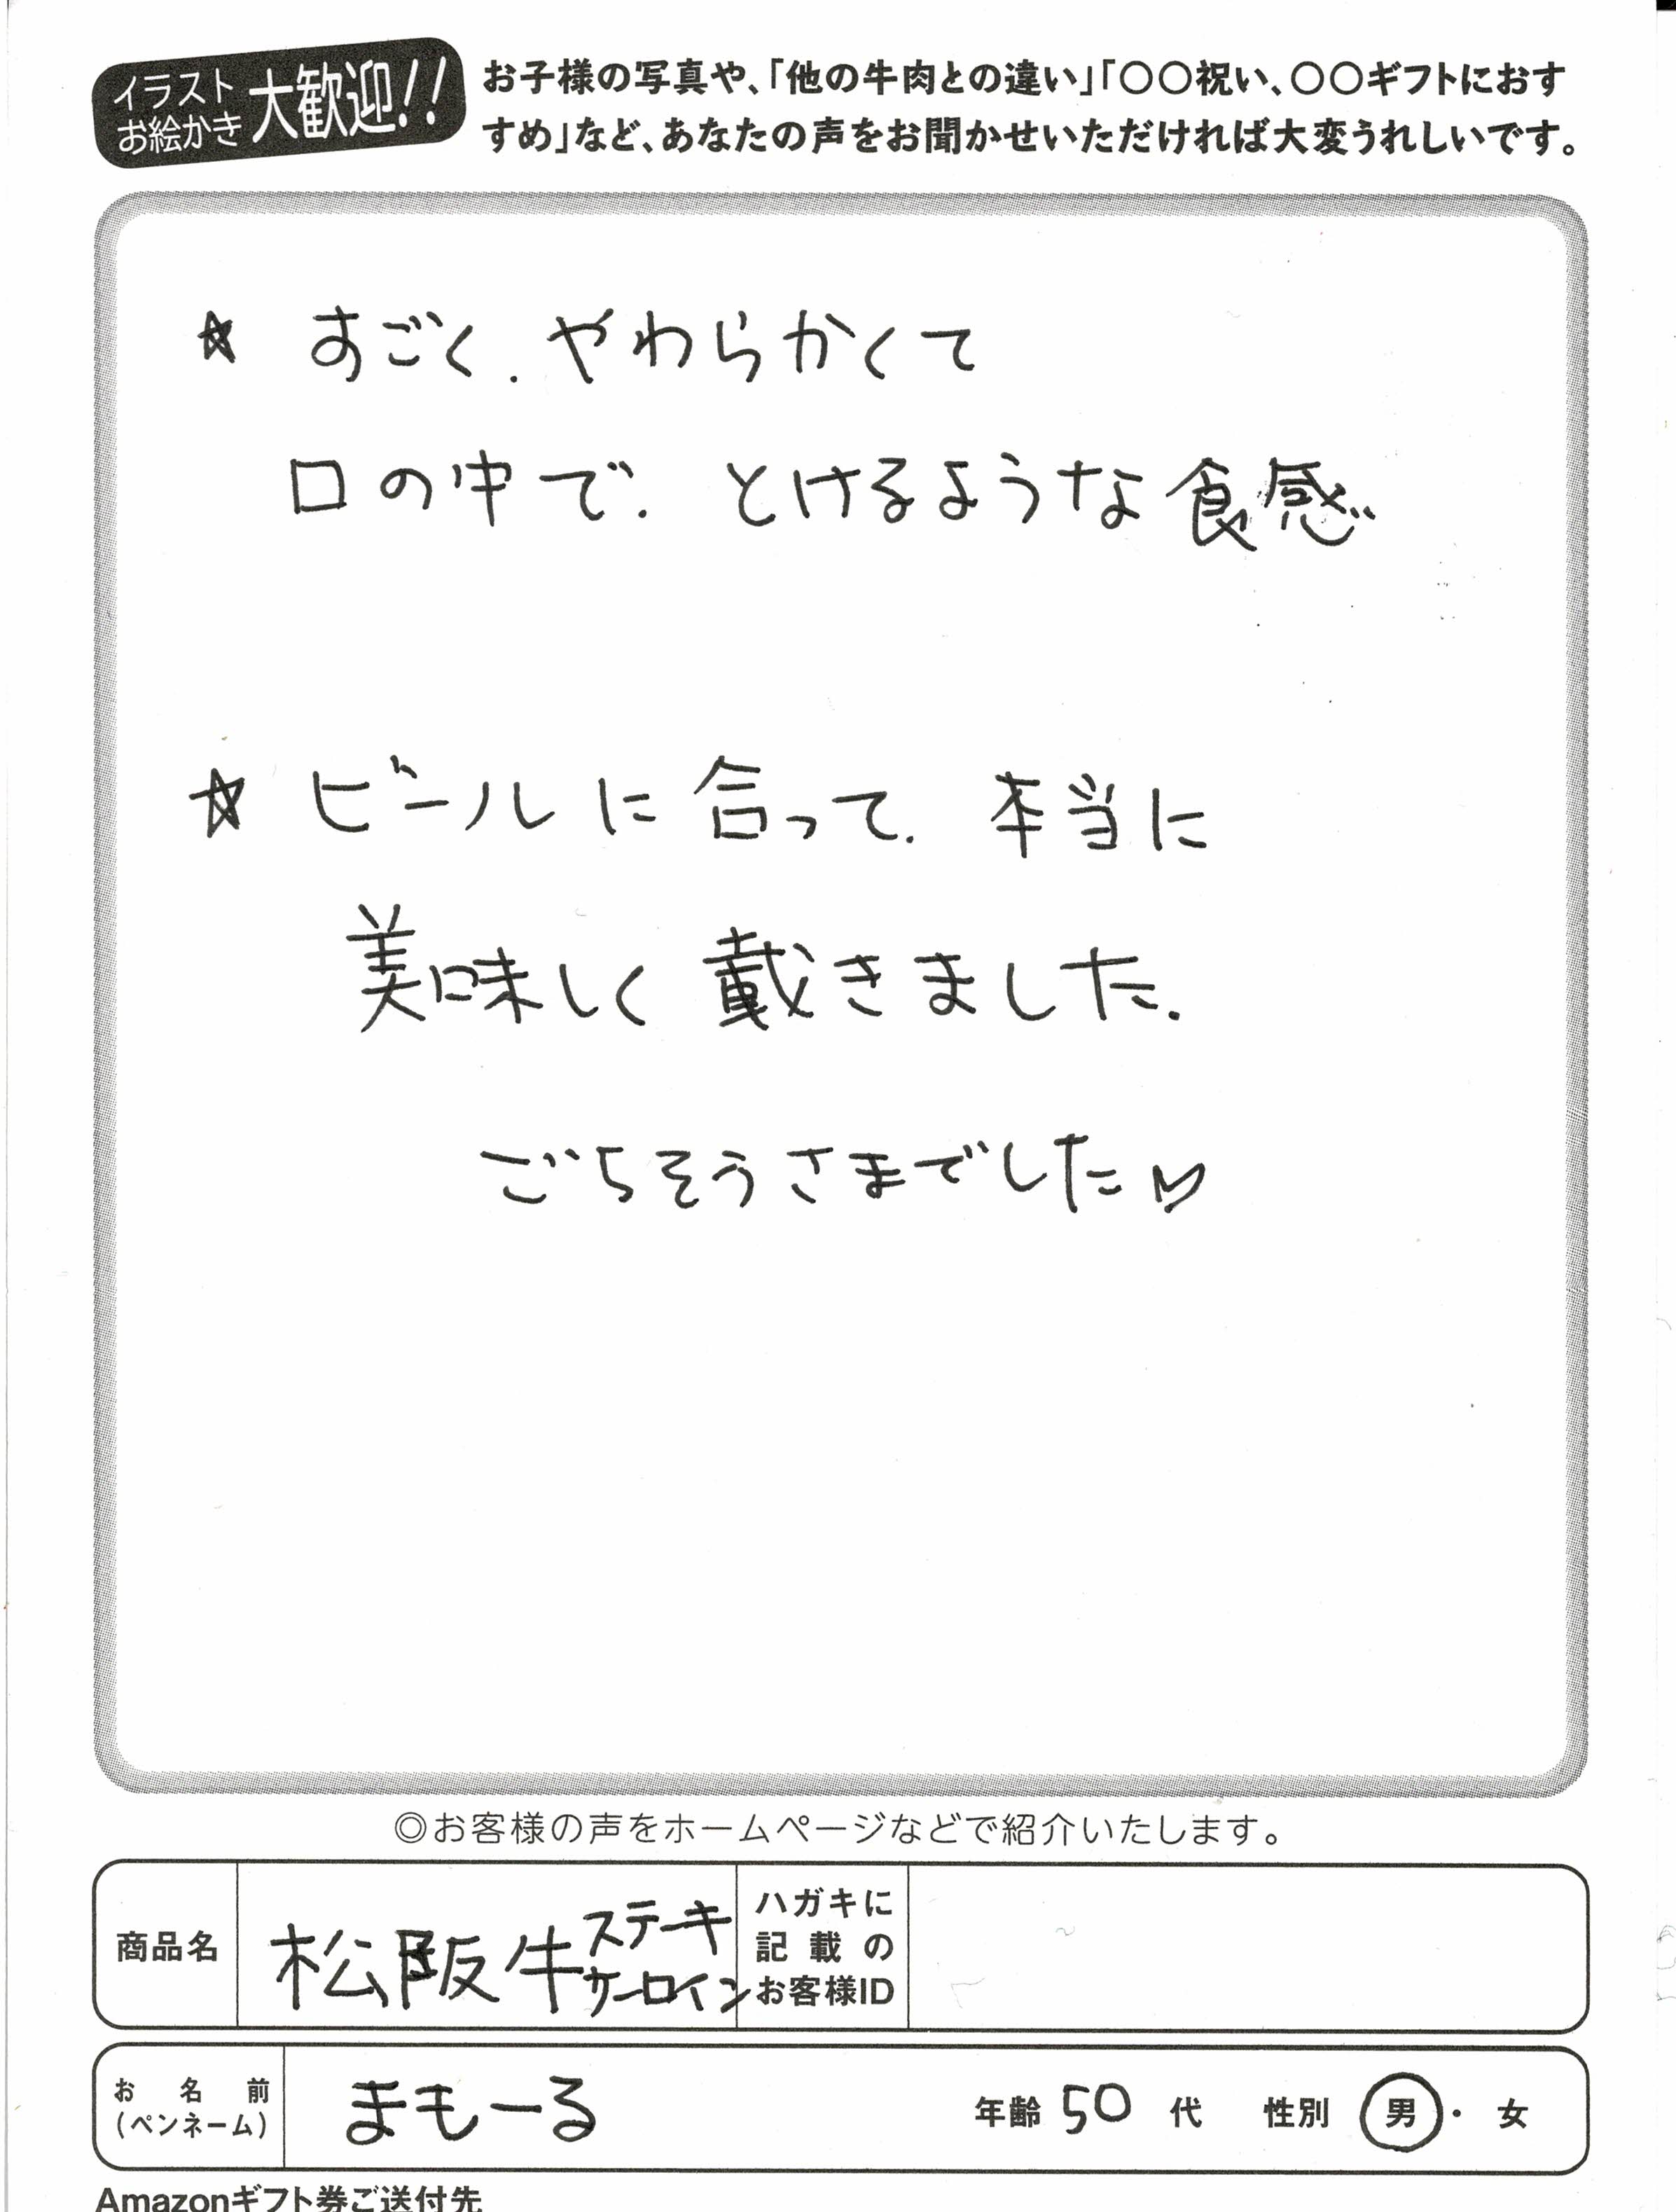 イラスト
お絵かき
大歓迎!!
お子様の写真や、「他の牛肉との違い」「〇〇祝い、〇〇ギフトにおす
すめ」など、あなたの声をお聞かせいただければ大変うれしいです。
☆ すごく、やわらかくて
口の中で、とけるような食感
☆ ビールに合って、本当に
美味しく戴きました。
ごちそうさまでした♡
◎お客様の声をホームページなどで紹介いたします。
商品名
松阪牛ステーキ
サーロイン
ハガキに
記載の
お客様ID
お名前
(ペンネーム)
まもーる
年齢 50 代 性別 男・女
Amazonギフト券ご送付先